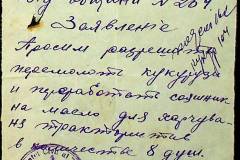 общини № 264
Заявленіе
Просим разрешить
перемолоть кукурузи
и переработать сояшник
на масло для харчува-
ня трактористів
в количестве 8 душ.